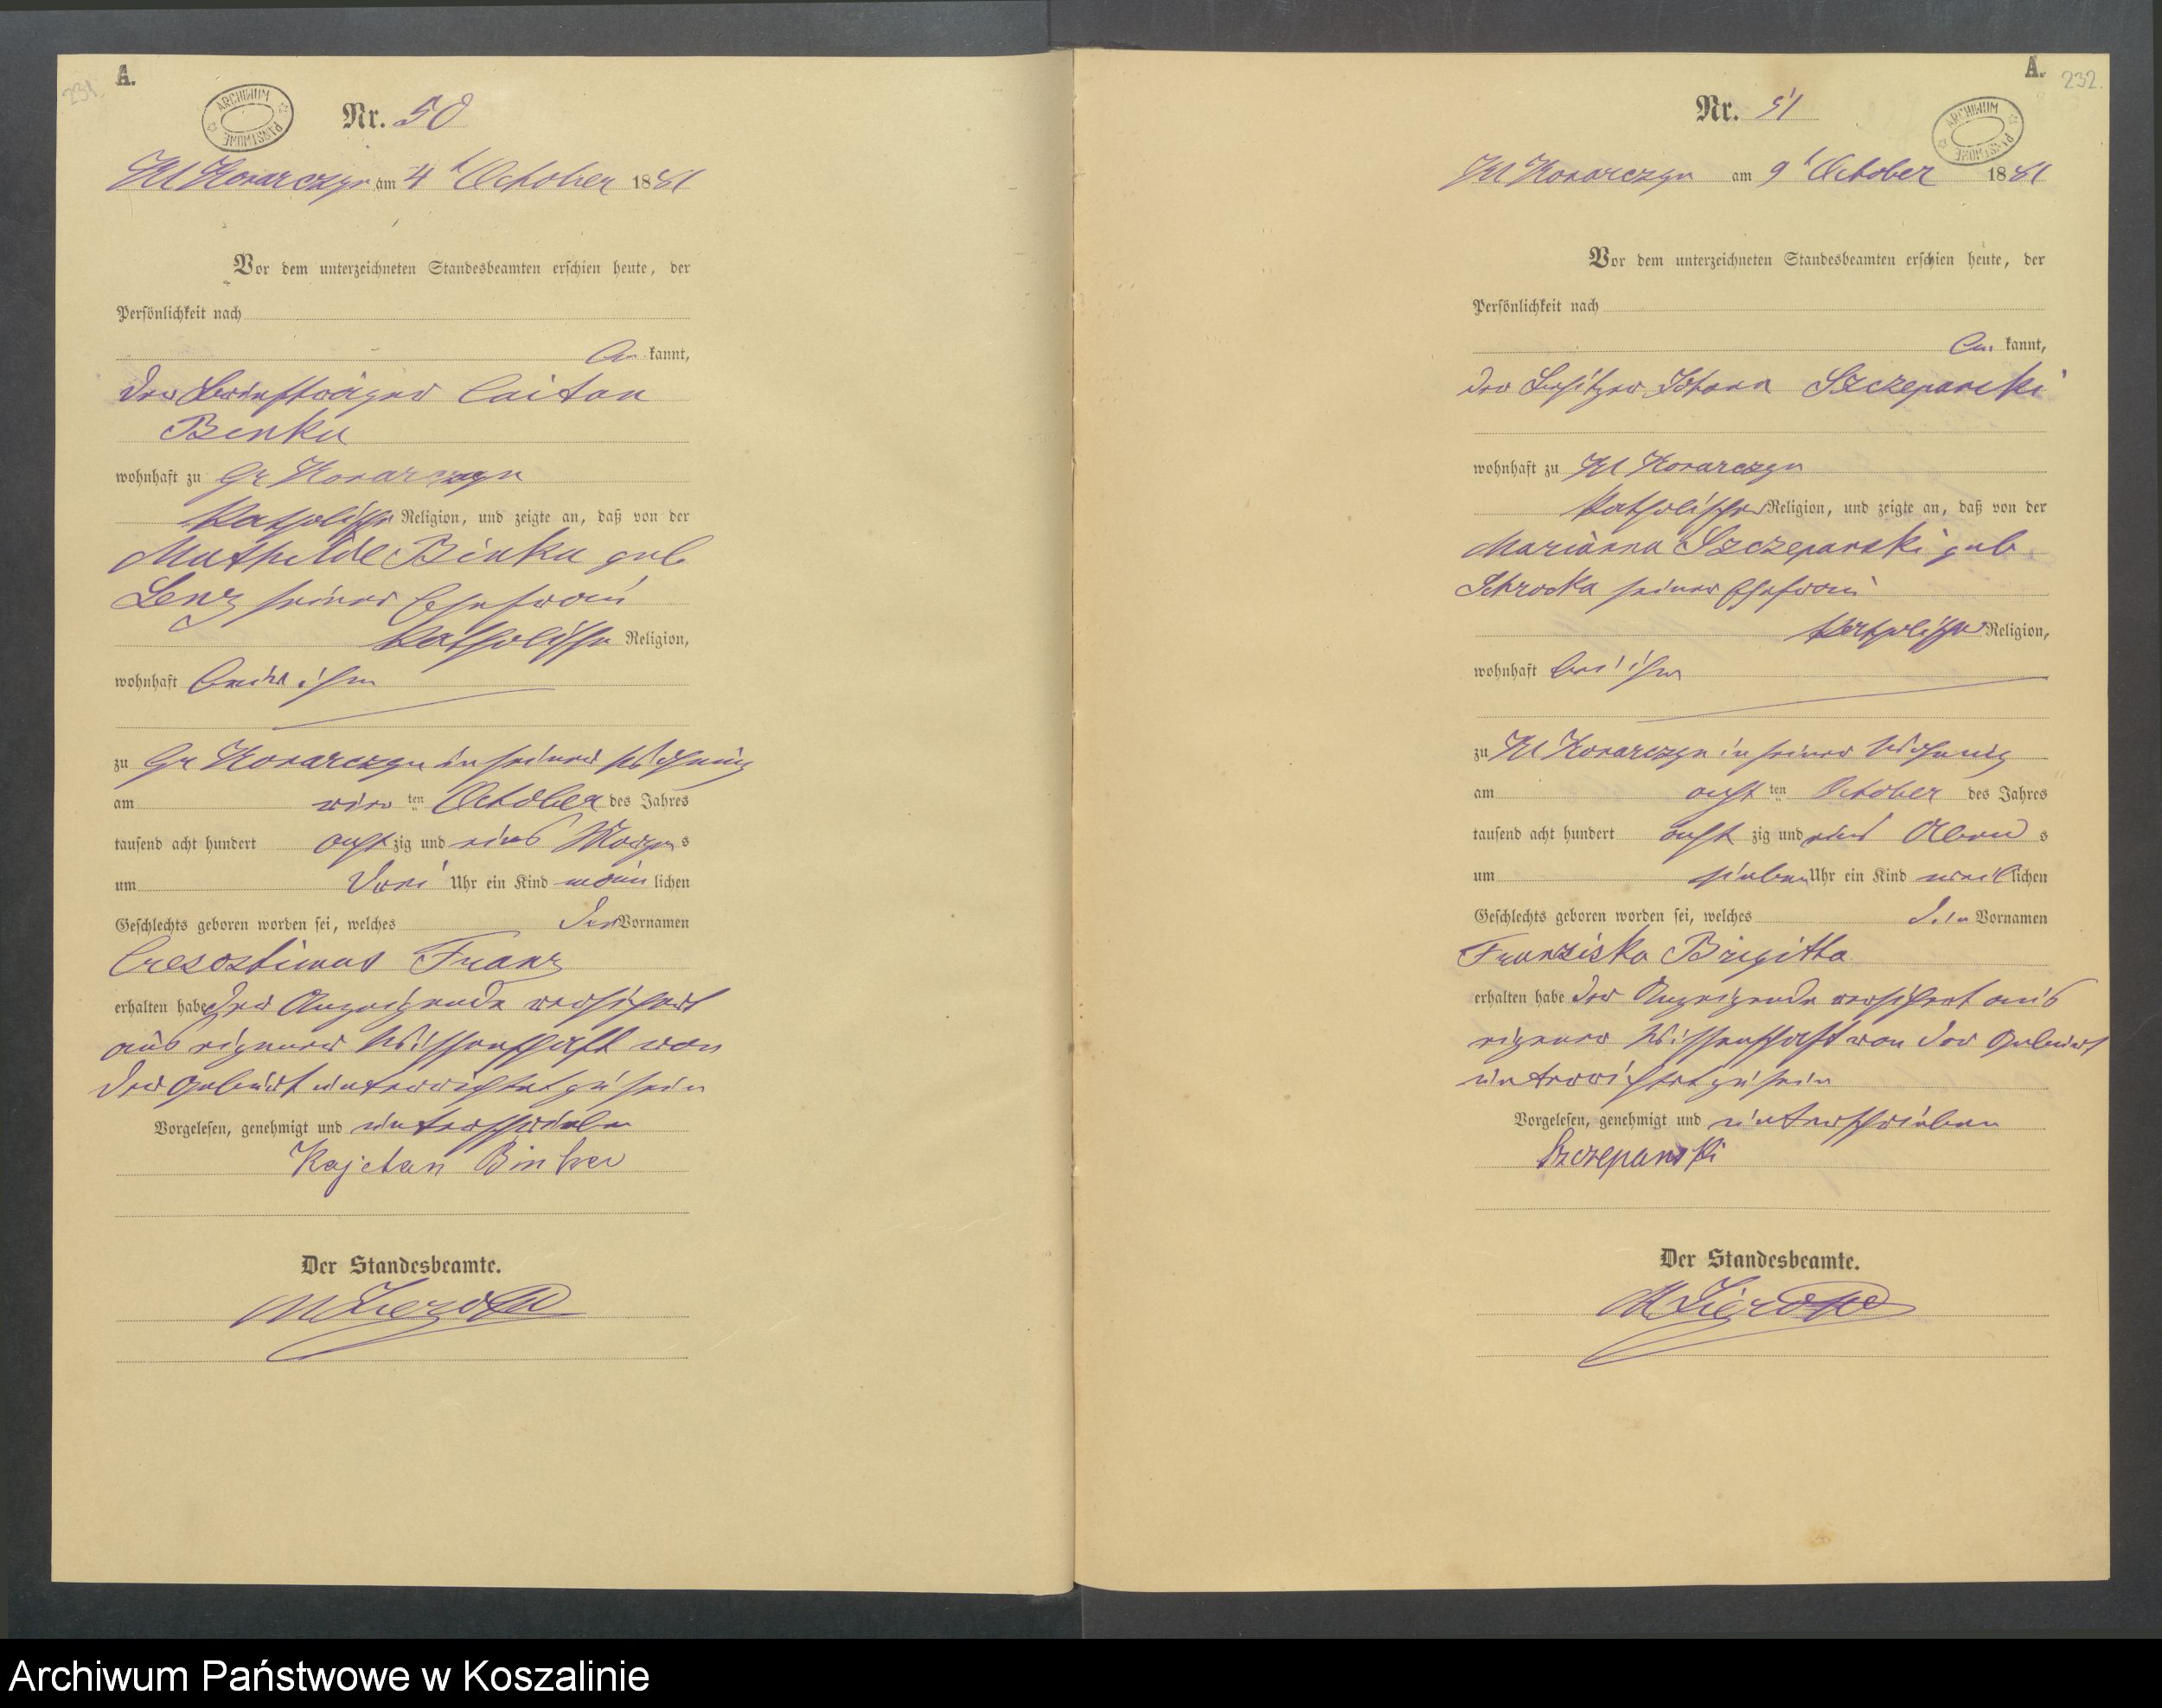 231.
A.
ARCHIWUM PAŃSTWOWE
Nr. 50
Kl Konarczyn am 4 t October 1881
Vor dem unterzeichneten Standesbeamten erschien heute, der
Persönlichkeit nach
be kannt,
der Briefträger Caitan
Binku
wohnhaft zu Gr Konarczyn
katholischer Religion, und zeigte an, daß von der
Mathilde Binku geb
Lenz seiner Ehefrau
katholischer Religion,
wohnhaft bei ihm
zu Gr Konarczyn in seiner Wohnung
am vier ten October des Jahres
tausend acht hundert acht zig und eins Morgen s
um drei Uhr ein Kind männ lichen
Geschlechts geboren worden sei, welches den Vornamen
Cresostimus Franz
erhalten habe der Anzeigende versichert
aus eigener Wissenschaft von
der Geburt unterrichtet zu sein
Vorgelesen, genehmigt und unterschrieben
Kajetan Binker
Der Standesbeamte.
A.
232.
ARCHIWUM PAŃSTWOWE
Nr. 51
Kl Konarczyn am 9 t October 1881
Vor dem unterzeichneten Standesbeamten erschien heute, der
Persönlichkeit nach
be kannt,
der Besitzer Johann Szczepanski
wohnhaft zu Kl Konarczyn
katholischer Religion, und zeigte an, daß von der
Marianna Szczepanski geb
Schrocka seiner Ehefrau
katholischer Religion,
wohnhaft bei ihm
zu Kl Konarczyn in seiner Wohnung
am acht ten October des Jahres
tausend acht hundert acht zig und eins Abend s
um sieben Uhr ein Kind weib lichen
Geschlechts geboren worden sei, welches die Vornamen
Franziska Brigitta
erhalten habe der Anzeigende versichert aus
eigener Wissenschaft von der Geburt
unterrichtet zu sein
Vorgelesen, genehmigt und unterschrieben
Szczepanski
Der Standesbeamte.
Archiwum Państwowe w Koszalinie